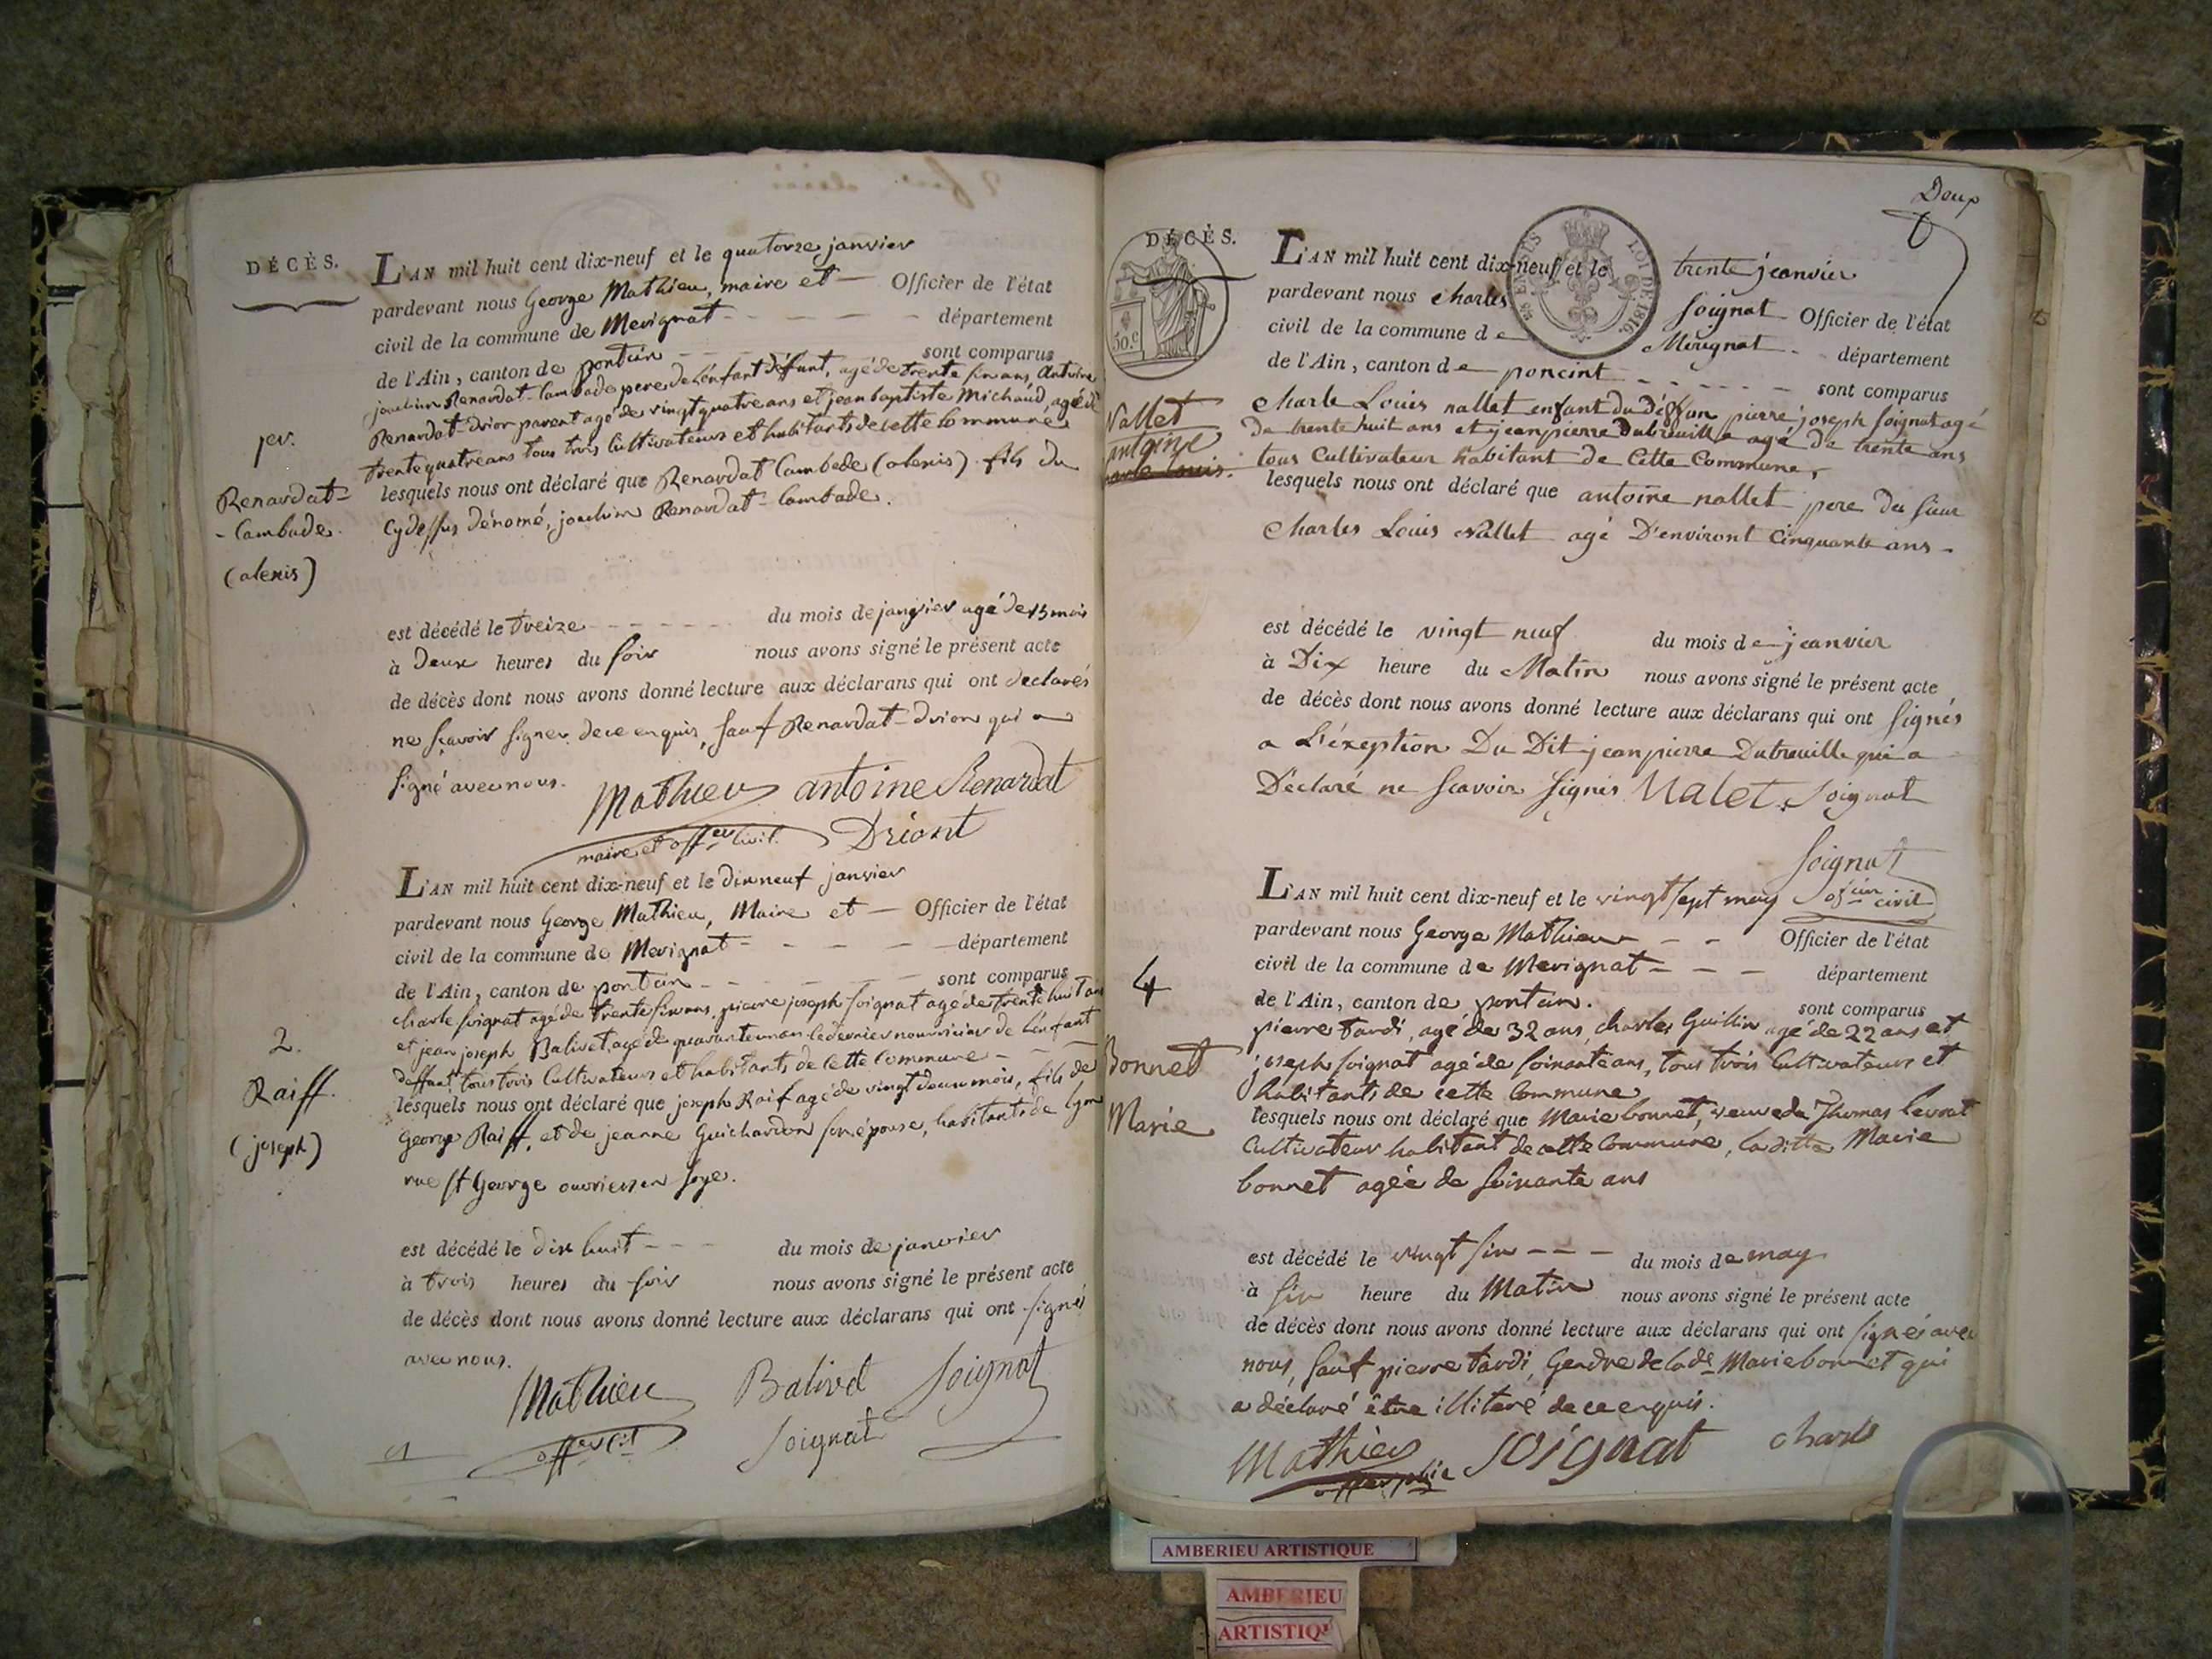 DÉCÈS.
L'AN mil huit cent dix-neuf et le quatorze janvier
pardevant nous George Mathieu, maire et — Officier de l'état
civil de la commune de Merignat - - - - département
de l'Ain, canton de pontin - - - sont comparus
joachim Renardat-lambade pere de l'enfant défunt, agé de trente six ans, Antoine
Renardat-Drion parent agé de vingt quatre ans et jean baptiste Michaud, agé de
trente quatre ans tous trois Cultivateurs et habitants de cette Commune,
1er.
lesquels nous ont déclaré que Renardat Lambade (alexis) fils du
Renardat-
-Lambade.
(alexis)
cy dessus dénomé, joachim Renardat-lambade.
est décédé le treize - - - - - - du mois de janvier agé de 15 mois
à Deux heures du soir nous avons signé le présent acte
de décès dont nous avons donné lecture aux déclarans qui ont declarés
ne sçavoir signer de ce enquis, sauf Renardat-drion qui a
signé avec nous. Mathieu antoine Renardat
maire et offer civil. Driont
L'AN mil huit cent dix-neuf et le dix neuf janvier
pardevant nous George Mathieu, Maire et — Officier de l'état
civil de la commune de Merignat - - - - département
de l'Ain, canton de pontin - - - - - sont comparus
charle soignat agé de trente six ans, pierre joseph soignat agé de trente huit ans
et jean joseph Balivet, agé de quarante un an le dernier nourricier de l'enfant
deffunt, tous trois Cultivateurs et habitants de cette Commune - - -
2.
Raiff.
(joseph)
lesquels nous ont déclaré que joseph Raif agé de vingt deux mois, fils de
George Raiff, et de jeanne Guichardon son épouse, habitants de lyon
rue st George ouvriers en soye.
est décédé le dix huit - - - du mois de janvier
à trois heures du soir nous avons signé le présent acte
de décès dont nous avons donné lecture aux déclarans qui ont signés
avec nous.
Mathieu Balivet Soignat
Soignat
Deux
DÉCÈS.
50.c
LOI DE 1816.
L'AN mil huit cent dix-neuf et le trente jeanvier
pardevant nous charles soignat Officier de l'état
civil de la commune de Mérignat - département
de l'Ain, canton de poncint - - - - - sont comparus
Charle Louis nallet enfant du déffun pierre joseph soignat agé
de trente huit ans et jean pierre Dutreuille agé de trente ans
tous Cultivateur habitant de Cette Commune,
Nallet
antoine
lesquels nous ont déclaré que antoine nallet pere du sieur
Charles Louis Nallet agé D'environt Cinquante ans -
est décédé le vingt neuf du mois de jeanvier
à Dix heure du Matin nous avons signé le présent acte
de décès dont nous avons donné lecture aux déclarans qui ont signés
a L'éxeption Du Dit jean pierre Dutreuille qui a
Déclaré ne scavoir signés Nalet. Soignat
Soignat
civil
L'AN mil huit cent dix-neuf et le vingt sept may
pardevant nous George Mathieu - - - Officier de l'état
civil de la commune de Merignat - - - département
de l'Ain, canton de pontin. sont comparus
4
Bonnet
Marie
pierre tardi, agé de 32 ans, charles Guillin agé de 22 ans et
joseph soignat agé de soixante ans, tous trois Cultivateurs et
habitants de cette Commune
lesquels nous ont déclaré que Marie bonnet, veuve de Thomas levrat
Cultivateur habitant de cette Commune, la ditte Marie
bonnet agée de soixante ans
est décédé le vingt six - - - du mois de may
à six heure du Matin nous avons signé le présent acte
de décès dont nous avons donné lecture aux déclarans qui ont signés avec
nous, sauf pierre tardi, Gendre de lade Marie bonnet qui
a déclaré être illiteré de ce enquis.
Mathieu Soignat charle
AMBERIEU ARTISTIQUE
AMBERIEU
ARTISTIQU